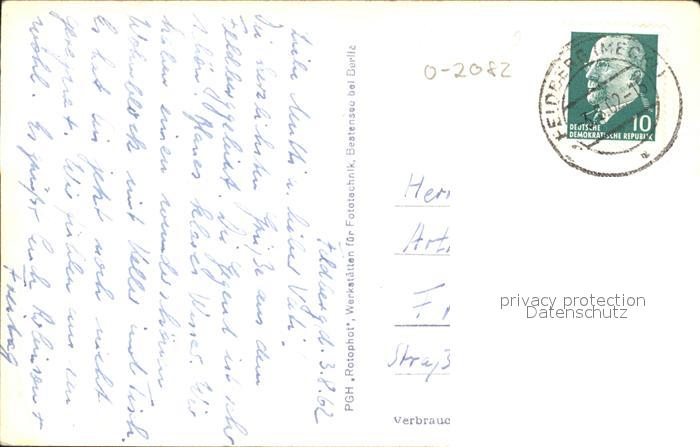 Feldberg, d. 3.8.62
Liebe Mutti u. lieber Vati!
Die herzlichsten Grüße aus dem
Feldberggebiet. Die Gegend ist sehr
schön. Blaues klares Wasser. Wir
haben einen wunderschönen
Wohnblock mit Keller und Tisch.
Es hat bis jetzt noch nicht
geregnet. Wir fühlen uns
wohl. Es grüßt Euch
Freitag
PGH „Rotophot", Werkstätten für Fototechnik, Bestensee bei Berlin
0-2082
FELDBERG (MECKL
62-1
DEUTSCHE 10
DEMOKRATISCHE REPUBLIK
Herr
Art
Straß
privacy protection
Datenschutz
Verbrauc